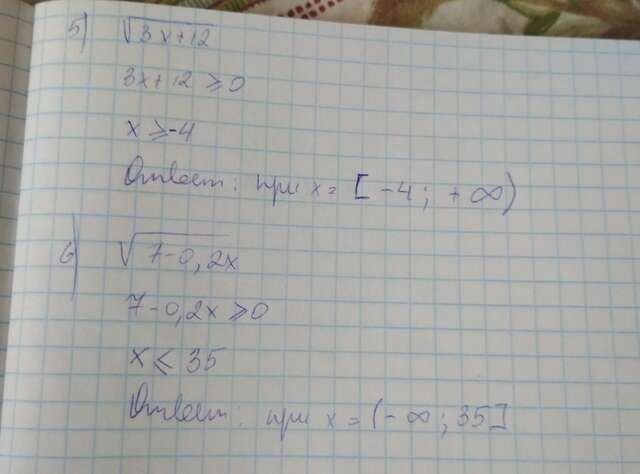 5) √3x+12
3x+12 ≥ 0
x ≥ -4
Ответ: при x = [-4; +∞)
6) √7-0,2x
7-0,2x ≥ 0
x ≤ 35
Ответ: при x = (-∞; 35]